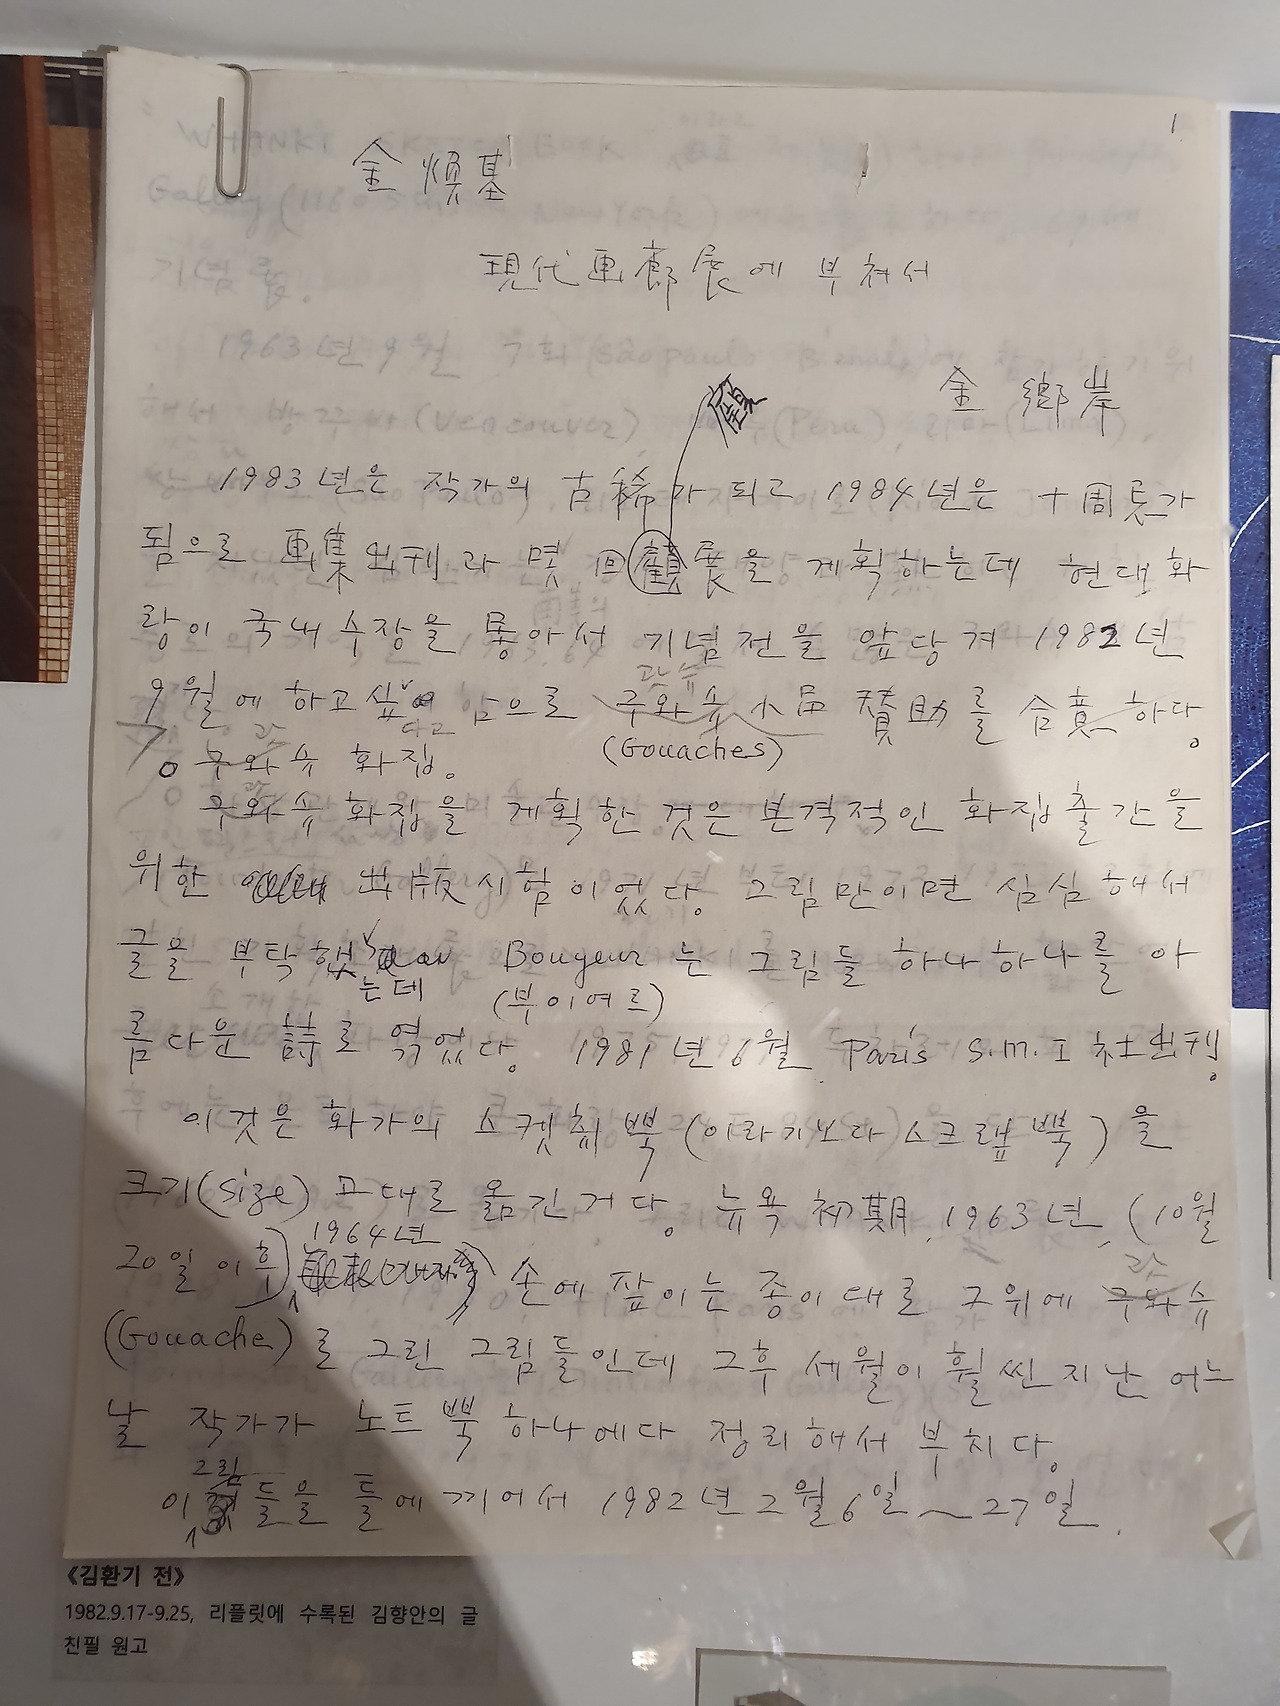 1
金煥基
現代画廊展에 부쳐서
金鄕岸
1983년은 작가의 古稀가 되고 1984년은 十周忌가
됨으로 画集出刊과 몇 回顧展을 계획하는데 현대화
랑이 국내수장을 통아서 기념전을 앞당겨 1982년
9월에 하고싶어 함으로 과슈 小品 賛助를 合意하다.
(Gouaches)
과슈 화집.
과슈 화집을 계획한 것은 본격적인 화집출간을
위한 出版시험이었다. 그림만이면 심심해서
글을 부탁했는데 Bouyeur는 그림들 하나하나를 아
(부이여르)
름다운 詩로 엮었다. 1981년 6월 Paris S.M.I 社出刊.
이것은 화가의 스켓취 뿍(이라기보다 스크랲 뿍)을
크기(size) 고대로 옮긴거다. 뉴욕 初期, 1963년, (10월
20일 이후) 1964년 손에 잪이는 종이대로 구위에 과슈
(Gouache)로 그린 그림들인데 그후 세월이 훨씬 지난 어느
날 작가가 노트뿍 하나에다 정리해서 부치다.
이 그림들을 틀에 끼어서 1982년 2월 6일~27일.
《김환기 전》
1982.9.17-9.25, 리플릿에 수록된 김향안의 글
친필 원고